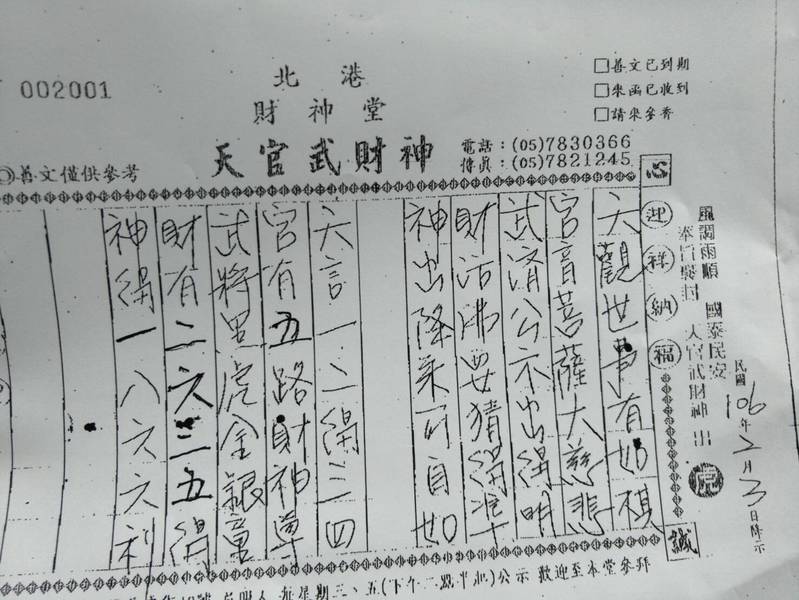 002001
北港
財神堂
天官武財神
善文僅供參考
電話：(05)7830366
傳眞：(05)7821245
□善文已到期
□來函已收到
□請來參香
心
迎祥納福
誠
風調雨順 國泰民安
天官武財神 出
民國106年2月3日降示
天觀世事有如棋
宮音菩薩大慈悲
武濟公示出得明
財活佛要猜得準
神出降來可自如
天言一二得三四
官有五路財神尊
武將黑虎金銀童
財有二六三五得
神得一八六六利
每星期三、五(下午二點半起)公示 歡迎至本堂參拜